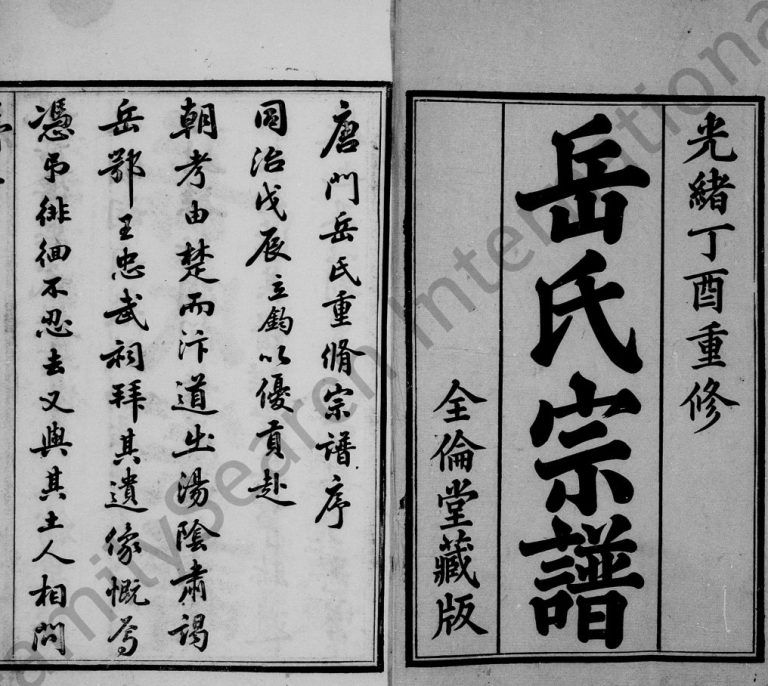 光緒丁酉重修
岳氏宗譜
全倫堂藏版
唐門岳氏重脩宗譜序
同治戊辰立鈞以優貢赴
朝考由楚而汴道出湯陰肅謁
岳鄂王忠武祠拜其遺像慨焉
憑弔徘徊不忍去又與其土人相問
FamilySearch International